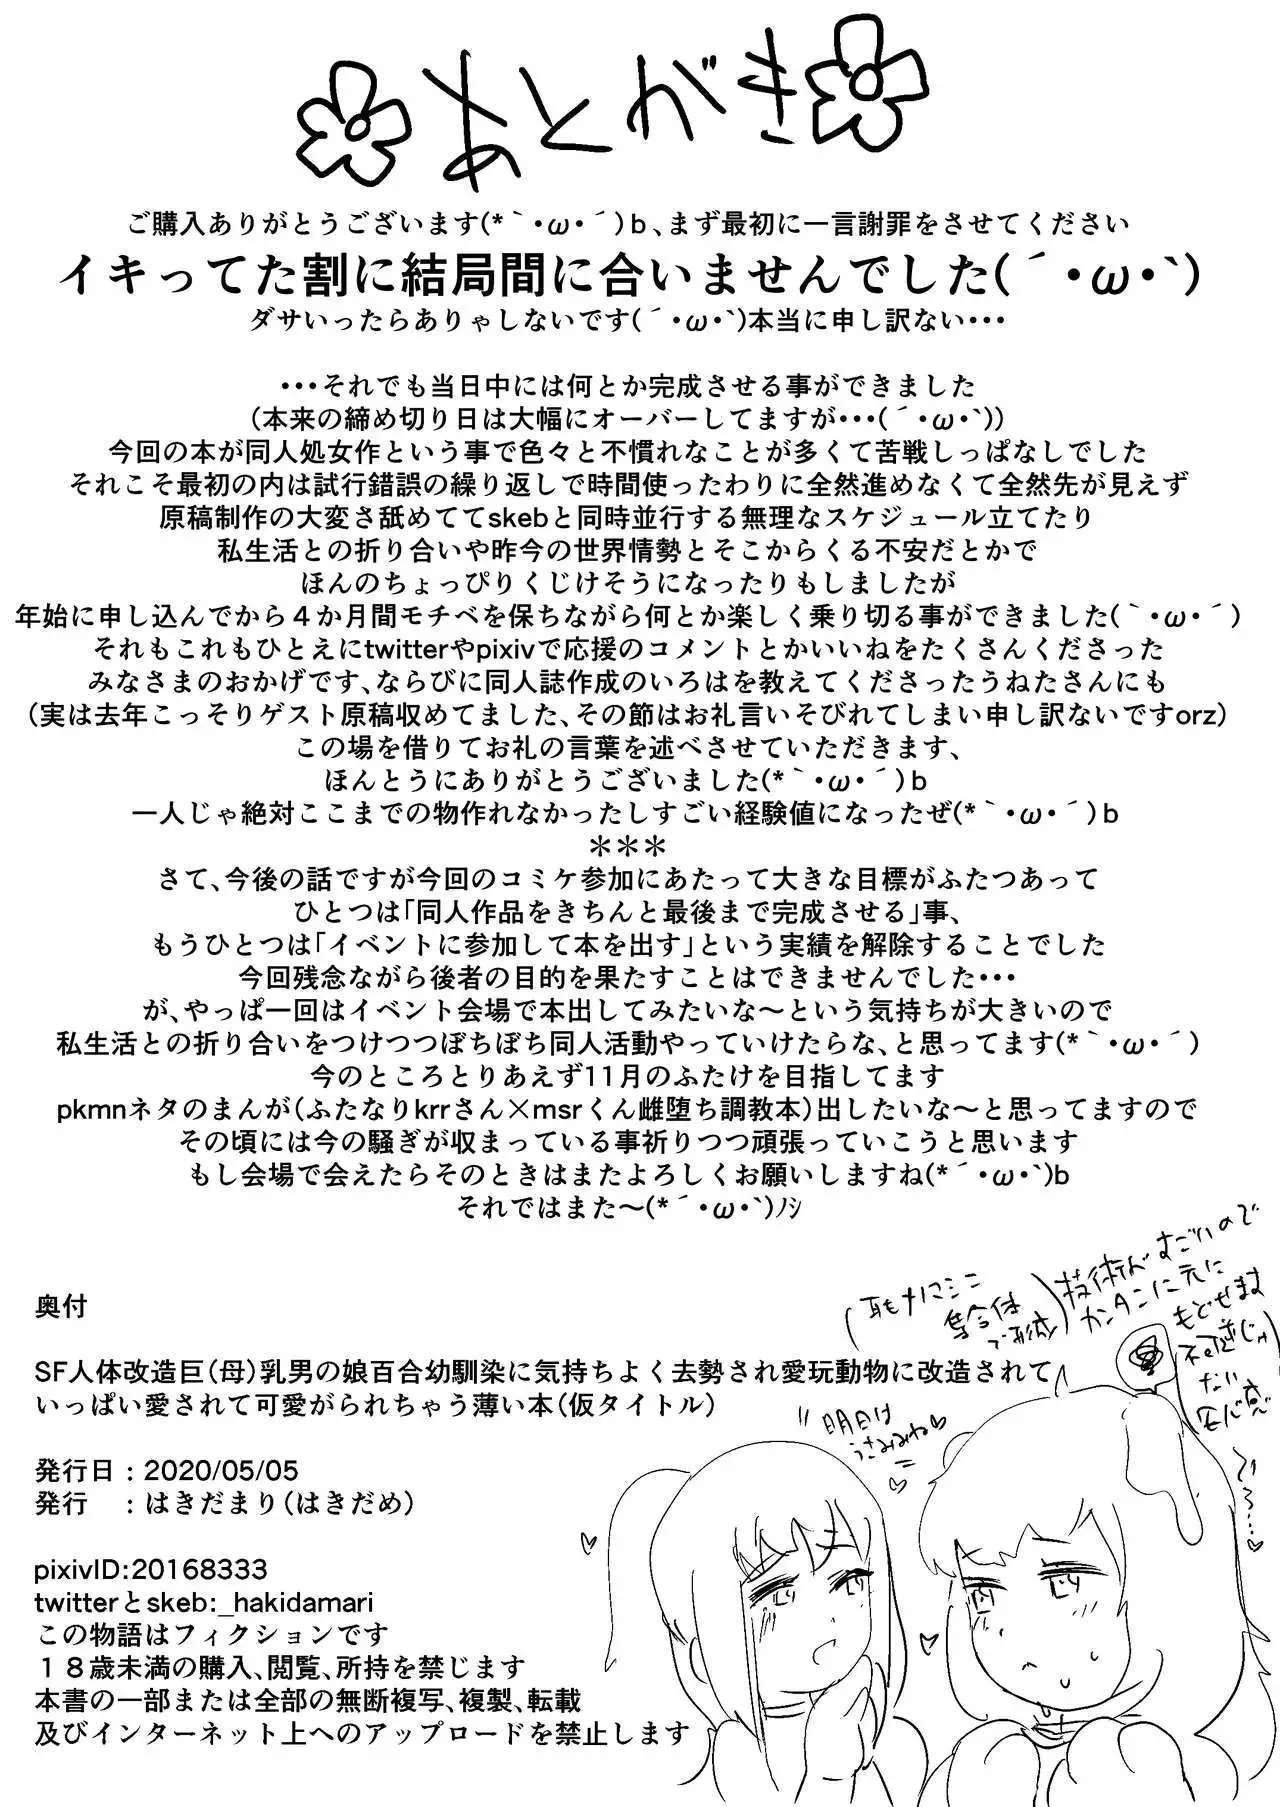 あとがき
ご購入ありがとうございます(*｀・ω・´)b、まず最初に一言謝罪をさせてください
イキってた割に結局間に合いませんでした(´・ω・`)
ダサいったらありゃしないです(´・ω・`)本当に申し訳ない・・・
・・・それでも当日中には何とか完成させる事ができました
(本来の締め切り日は大幅にオーバーしてますが・・・(´・ω・`))
今回の本が同人処女作という事で色々と不慣れなことが多くて苦戦しっぱなしでした
それこそ最初の内は試行錯誤の繰り返しで時間使ったわりに全然進めなくて全然先が見えず
原稿制作の大変さ舐めててskebと同時並行する無理なスケジュール立てたり
私生活との折り合いや昨今の世界情勢とそこからくる不安だとかで
ほんのちょっぴりくじけそうになったりもしましたが
年始に申し込んでから４か月間モチベを保ちながら何とか楽しく乗り切る事ができました(｀・ω・´)
それもこれもひとえにtwitterやpixivで応援のコメントとかいいねをたくさんくださった
みなさまのおかげです、ならびに同人誌作成のいろはを教えてくださったうねたさんにも
(実は去年こっそりゲスト原稿収めてました、その節はお礼言いそびれてしまい申し訳ないですorz)
この場を借りてお礼の言葉を述べさせていただきます、
ほんとうにありがとうございました(*｀・ω・´)b
一人じゃ絶対ここまでの物作れなかったしすごい経験値になったぜ(*｀・ω・´)b
＊＊＊
さて、今後の話ですが今回のコミケ参加にあたって大きな目標がふたつあって
ひとつは「同人作品をきちんと最後まで完成させる」事、
もうひとつは「イベントに参加して本を出す」という実績を解除することでした
今回残念ながら後者の目的を果たすことはできませんでした・・・
が、やっぱ一回はイベント会場で本出してみたいな～という気持ちが大きいので
私生活との折り合いをつけつつぼちぼち同人活動やっていけたらな、と思ってます(*｀・ω・´)
今のところとりあえず11月のふたけを目指してます
pkmnネタのまんが(ふたなりkrrさん×msrくん雌堕ち調教本)出したいな～と思ってますので
その頃には今の騒ぎが収まっている事祈りつつ頑張っていこうと思います
もし会場で会えたらそのときはまたよろしくお願いしますね(*´・ω・`)b
それではまた～(*´・ω・`)ﾉｼ
技術がすごいので
カンタンに元に
もどせます
不可逆じゃ
ない
安心感
(耳もナノマシン
集合体
で形成)
明日は
うさみみね♡
奥付
SF人体改造巨(母)乳男の娘百合幼馴染に気持ちよく去勢され愛玩動物に改造されて
いっぱい愛されて可愛がられちゃう薄い本(仮タイトル)
発行日：2020/05/05
発行　：はきだまり(はきだめ)
pixivID:20168333
twitterとskeb:_hakidamari
この物語はフィクションです
１８歳未満の購入、閲覧、所持を禁じます
本書の一部または全部の無断複写、複製、転載
及びインターネット上へのアップロードを禁止します